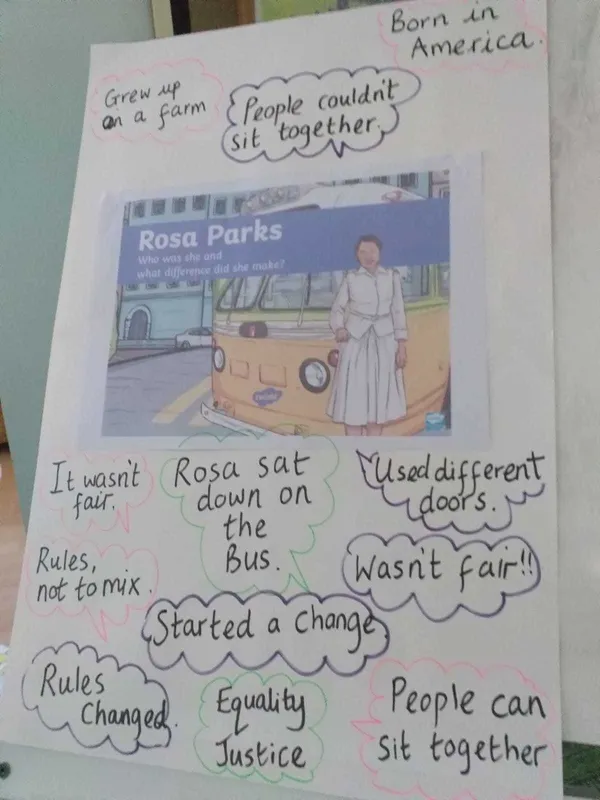 Born in
America.
Grew up
on a farm
People couldn't
sit together.
Rosa Parks
Who was she and
what difference did she make?
twinkl
It wasn't
fair.
Rosa sat
down on
the
Bus.
Used different
doors.
Rules,
not to mix.
Wasn't fair!!
Started a change
Rules
Changed.
Equality
Justice
People can
sit together